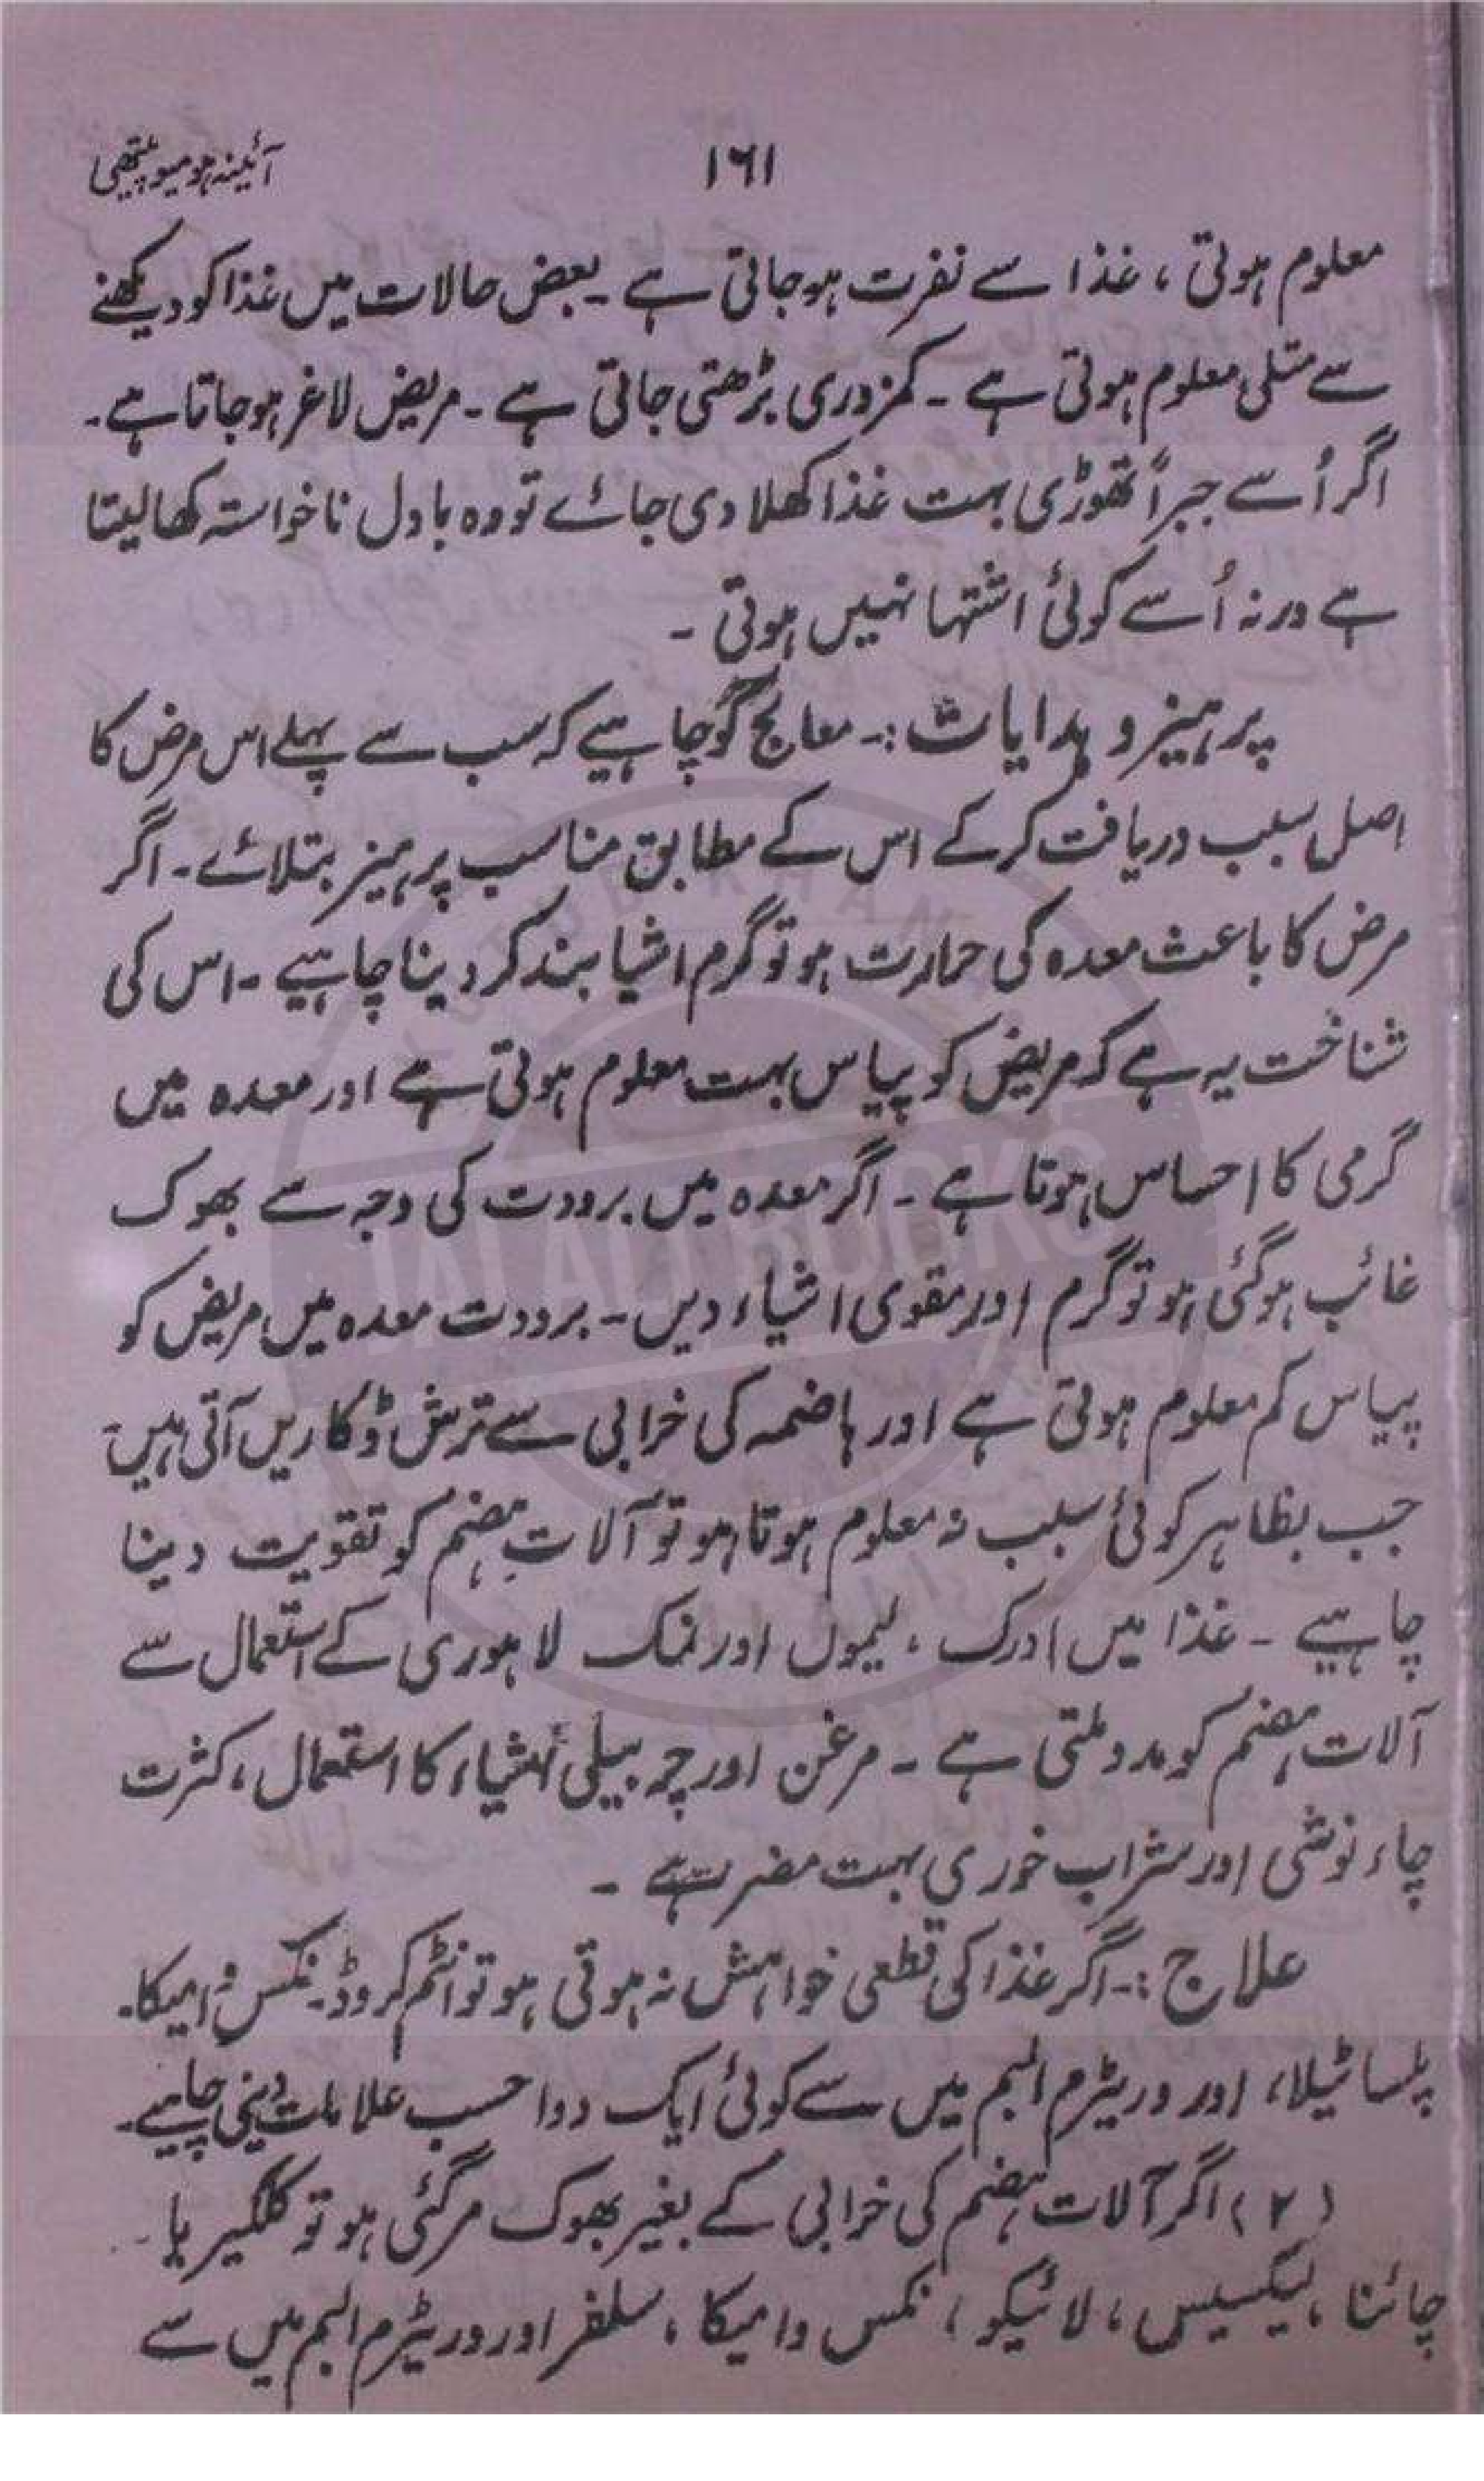 ۱۶۱ آئینہ ہومیوپیتھی
معلوم ہوتی ، غذا سے نفرت ہوجاتی ہے ۔ بعض حالات میں غذا کو دیکھنے
سے متلی معلوم ہوتی ہے ۔ کمزوری بڑھتی جاتی ہے ۔ مریض لاغر ہوجاتا ہے ۔
اگر اُسے جبراً تھوڑی بہت غذا کھلا دی جائے تو وہ بادل ناخواستہ کھا لیتا
ہے ورنہ اُسے کوئی اشتہا نہیں ہوتی ۔
پرہیز و ہدایات :۔ معالج کو چاہیے کہ سب سے پہلے اس مرض کا
اصل سبب دریافت کرکے اس کے مطابق مناسب پرہیز بتلائے ۔ اگر
مرض کا باعث معدہ کی حرارت ہو تو گرم اشیا بند کر دینا چاہیے ۔ اس کی
شناخت یہ ہے کہ مریض کو پیاس بہت معلوم ہوتی ہے اور معدہ میں
گرمی کا احساس ہوتا ہے ۔ اگر معدہ میں برودت کی وجہ سے بھوک
غائب ہوگئی ہو تو گرم اور مقوی اشیاء دیں ۔ برودت معدہ میں مریض کو
پیاس کم معلوم ہوتی ہے اور ہاضمہ کی خرابی سے ترش ڈکاریں آتی ہیں ۔
جب بظاہر کوئی سبب نہ معلوم ہوتا ہو تو آلاتِ ہضم کو تقویت دینا
چاہیے ۔ غذا میں ادرک ، لیموں اور نمک لاہوری کے استعمال سے
آلات ہضم کو مدد ملتی ہے ۔ مرغن اور چربیلی اشیاء کا استعمال ، کثرت
چاء نوشی اور شراب خوری بہت مضر ہے ۔
علاج :۔ اگر غذا کی قطعی خواہش نہ ہوتی ہو تو انٹم کروڈ ۔ نکس وامیکا ۔
پلساٹیلا ، اور وریٹرم البم میں سے کوئی ایک دوا حسب علامات دینی چاہیے ۔
(۲) اگر آلات ہضم کی خرابی کے بغیر بھوک مر گئی ہو تو کلکیریا ۔
چائنا ، لیکسیس ، لائیکو ، نکس وامیکا ، سلفر اور وریٹرم البم میں سے
KUTUB KHANA
JALALI BOOKS